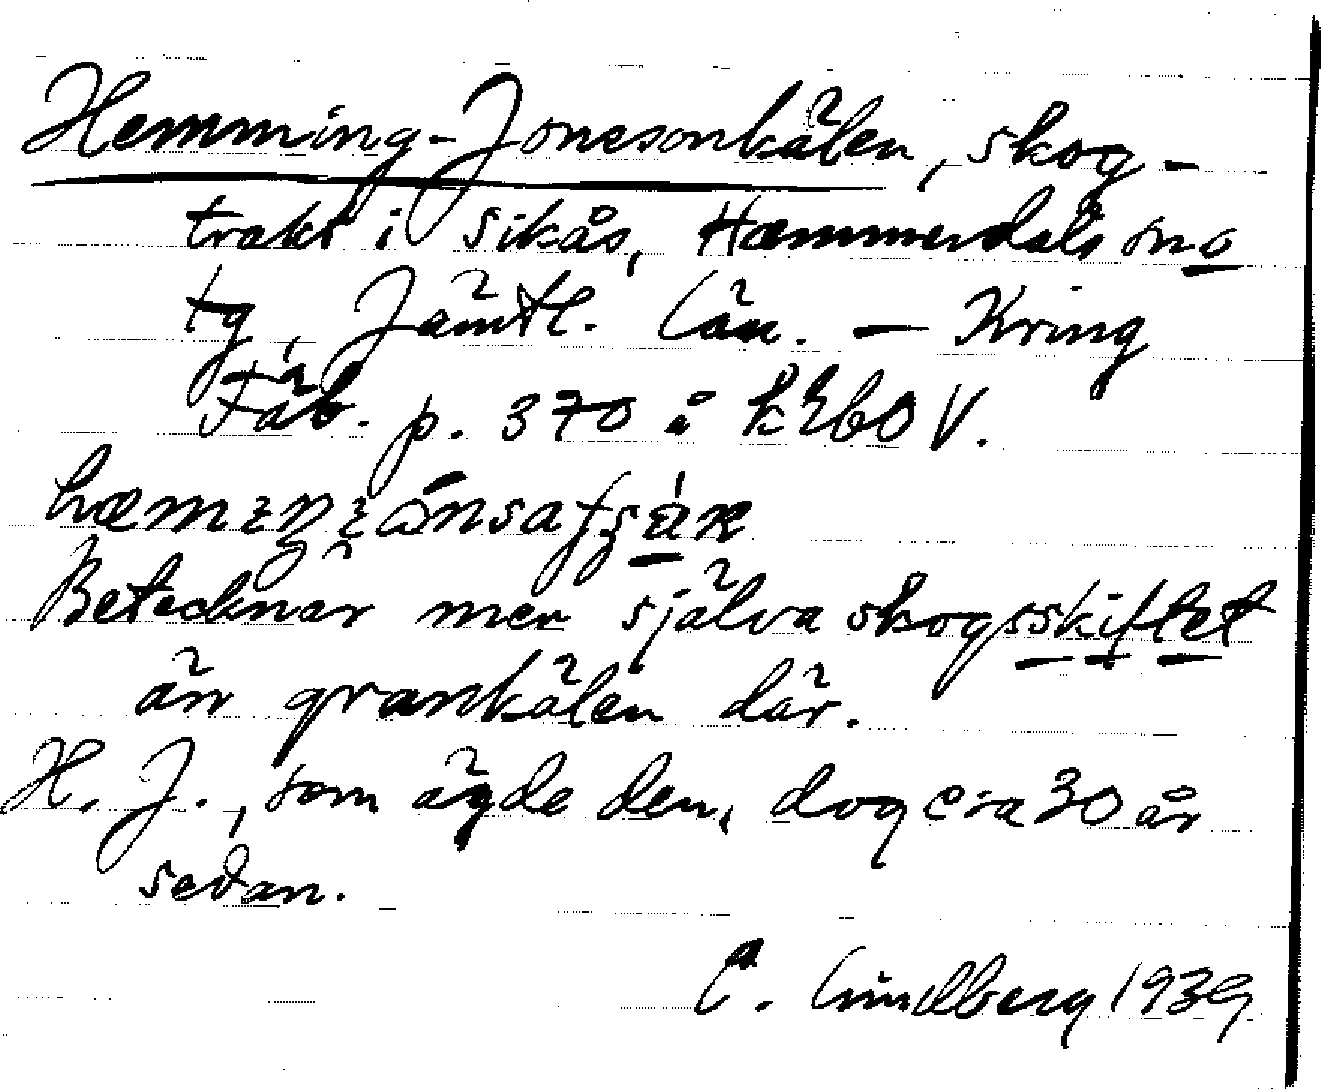 Hemming-Jonesonkälen, skog-
trakt i Sikås, Hammerdals sn o
tg, Jämtl. län. – Kring
Fäb. p. 370 å
Betecknar mer själva skogsskiftet
än grankälen där.
H. J., som ägde den, dog c:a 30 år
sedan.
C. Lundberg 1939